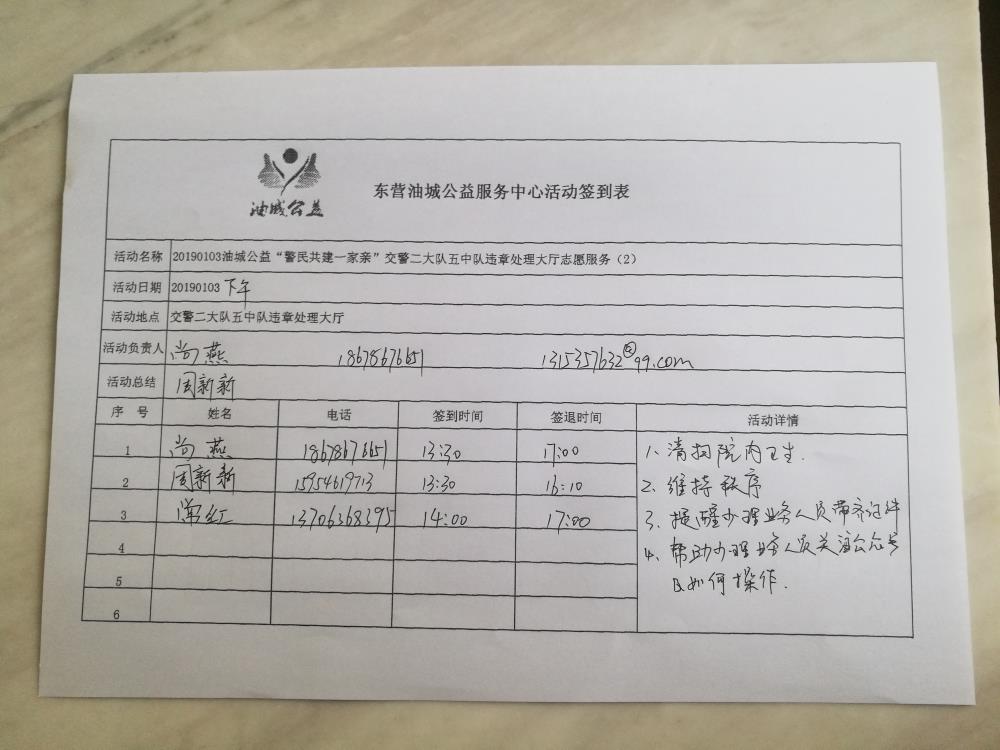 油城公益
东营油城公益服务中心活动签到表
活动名称 20190103油城公益“警民共建一家亲”交警二大队五中队违章处理大厅志愿服务（2）
活动日期 20190103 下午
活动地点 交警二大队五中队违章处理大厅
活动负责人 尚燕 18678676651 1315357632@99.com
活动总结 周新新
序号 姓名 电话 签到时间 签退时间 活动详情
1 尚燕 18678676651 13:30 17:00
2 周新新 15954619713 13:30 16:10
3 常红 13706368395 14:00 17:00
4
5
6
1、清扫院内卫生.
2、维持秩序
3、提醒办理业务人员带齐证件
4、帮助办理业务人员关注公众号
及如何操作.